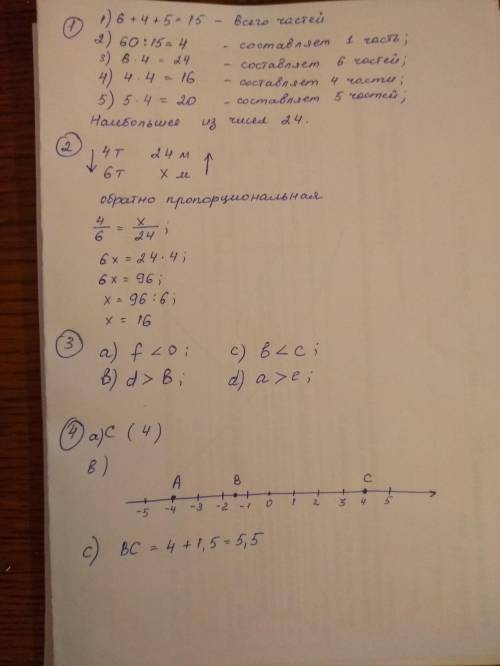 ① 1) 6 + 4 + 5 = 15 - всего частей
2) 60 : 15 = 4 - составляет 1 часть;
3) 6 · 4 = 24 - составляет 6 частей;
4) 4 · 4 = 16 - составляет 4 части;
5) 5 · 4 = 20 - составляет 5 частей;
Наибольшее из чисел 24.
② ↓ 4 т 24 м ↑
6 т x м
обратно пропорциональная
4/6 = x/24;
6x = 24 · 4;
6x = 96;
x = 96 : 6;
x = 16
③ a) f < 0; c) b < c;
b) d > B; d) a > e;
④ a) C (4)
b)
A B C
-5 -4 -3 -2 -1 0 1 2 3 4 5
c) BC = 4 + 1,5 = 5,5